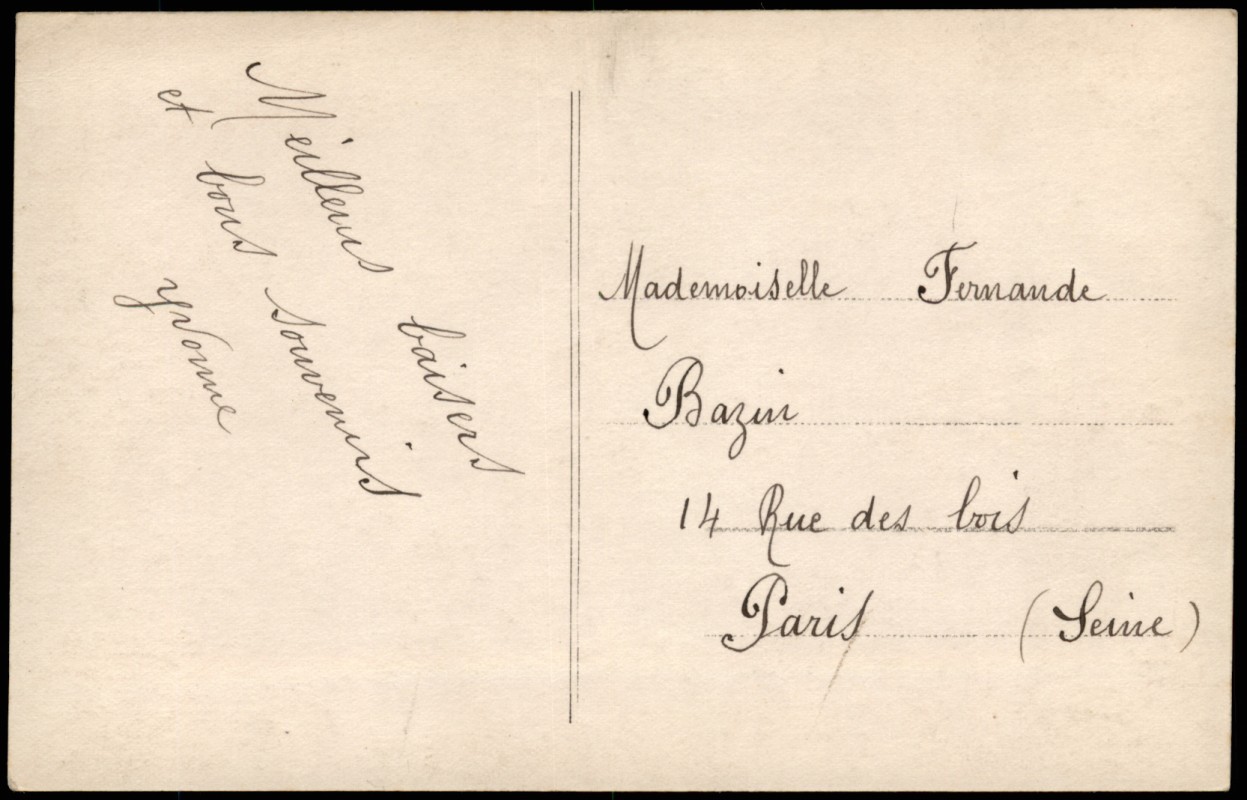 Meilleurs baisers
et bons souvenirs
Yvonne
Mademoiselle Fernande
Bazin
14 Rue des bois
Paris (Seine)